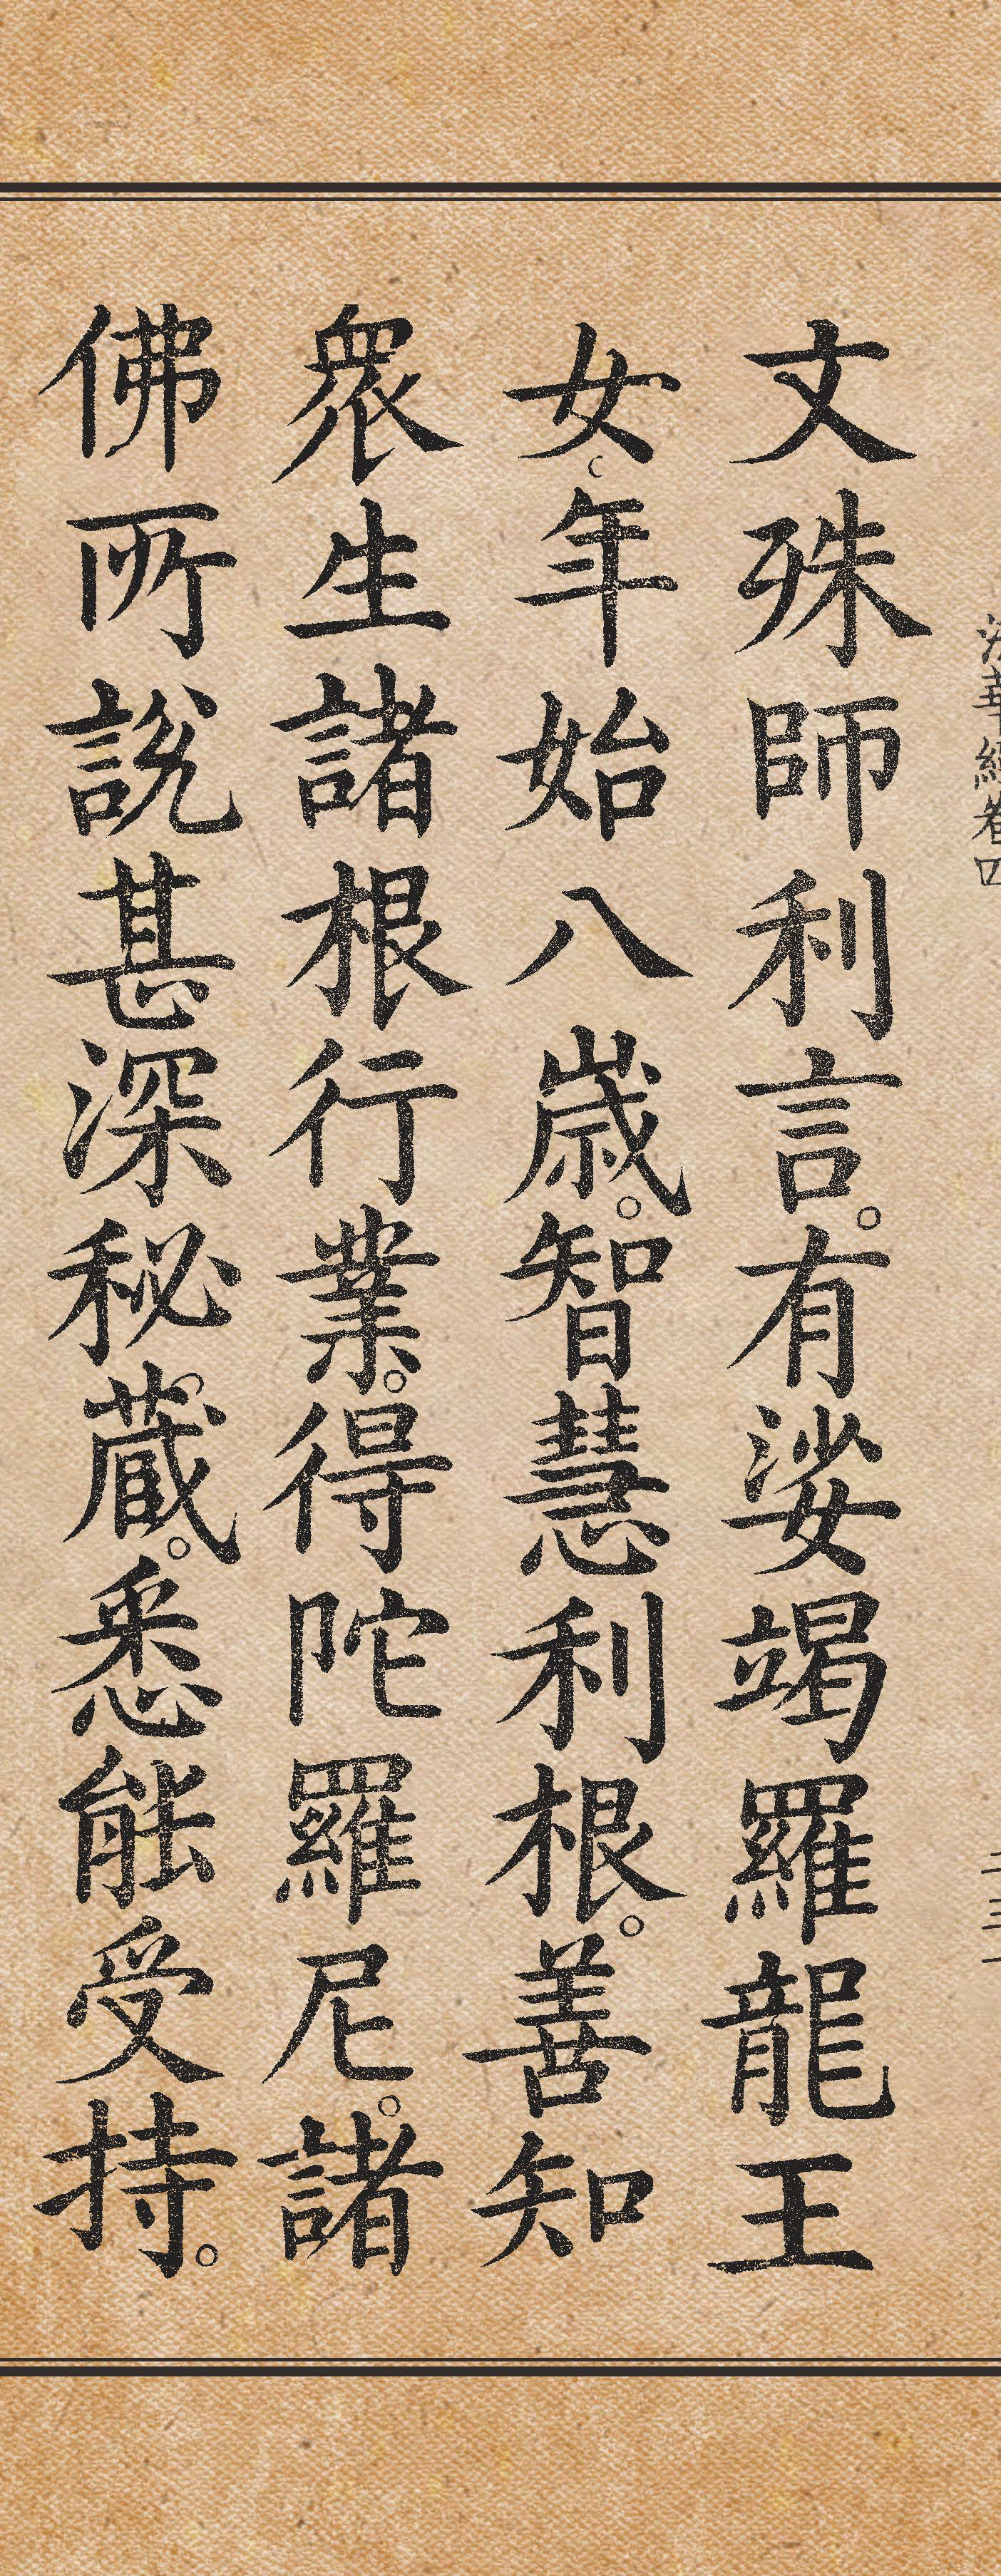 法華經卷四 二三一
文殊師利言。有娑竭羅龍王
女年始八歲。智慧利根。善知
衆生諸根行業。得陀羅尼。諸
佛所說甚深秘藏。悉能受持。